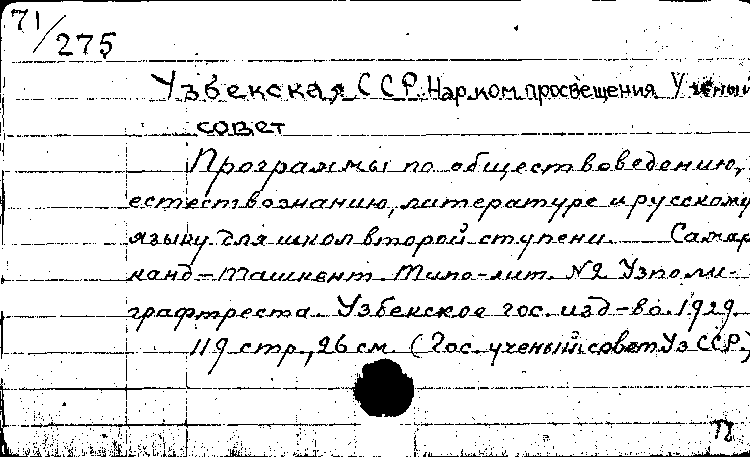 71/275
Узбекская ССР. Нар.ком.просвещения. Ученый
совет
Программы по обществоведению,
естествознанию, литературе и русскому
языку для школ второй ступени. Самар
канд-Ташкент. Типо-лит. №2 Узполи-
графтреста. Узбекское гос. изд-во. 1929.
119 стр., 26 см. (Гос. ученый совет УзССР)